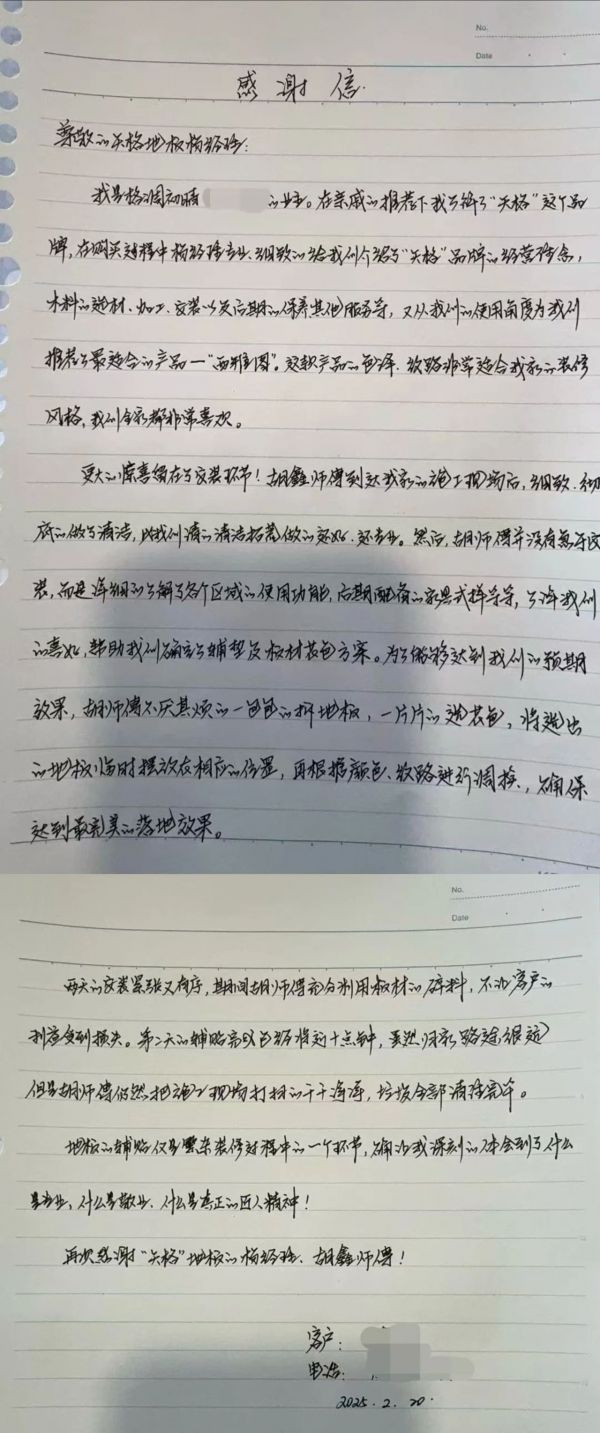 No.
Date
感谢信
尊敬的天格地板杨经理:
我是格调初晴 的业主。在亲戚的推荐下我了解了“天格”这个品
牌,在购买过程中杨经理专业、细致的给我们介绍了“天格”品牌的经营理念,
木料的选材、加工、安装以及后期的保养其他服务等,又从我们的使用角度为我们
推荐了最适合的产品—“西雅图”。这款产品的色泽、纹路非常适合我家的装修
风格,我们全家都非常喜欢。
更大的惊喜留在了安装环节!胡鑫师傅到达我家的施工现场后,细致、彻
底的做了清洁,比我们请的清洁拓荒做的还好、还专业。然后,胡师傅并没有急于安
装,而是详细的了解了各个区域的使用功能,后期配备的家具式样等等,了解我们
的喜好,帮助我们确定了铺垫及板材装色方案。为了能够达到我们的预期
效果,胡师傅不厌其烦的一包包的拆地板,一片片的选花色,将选出
的地板临时摆放在相应的位置,再根据颜色、纹路进行调换,确保
达到最完美的落地效果。
No.
Date
两天的安装紧张又有序,期间胡师傅充分利用板材的碎料,不让客户的
利益受到损失。第二天的铺贴完成已经将近十点钟,虽然归家路途很远
但是胡师傅仍然把施工现场打扫的干干净净,垃圾全部清理完毕。
地板的铺贴仅是繁杂装修过程中的一个环节,确让我深刻的体会到了什么
是专业,什么是敬业、什么是真正的匠人精神!
再次感谢“天格”地板的杨经理、胡鑫师傅!
客户:
电话:
2025.2.20.